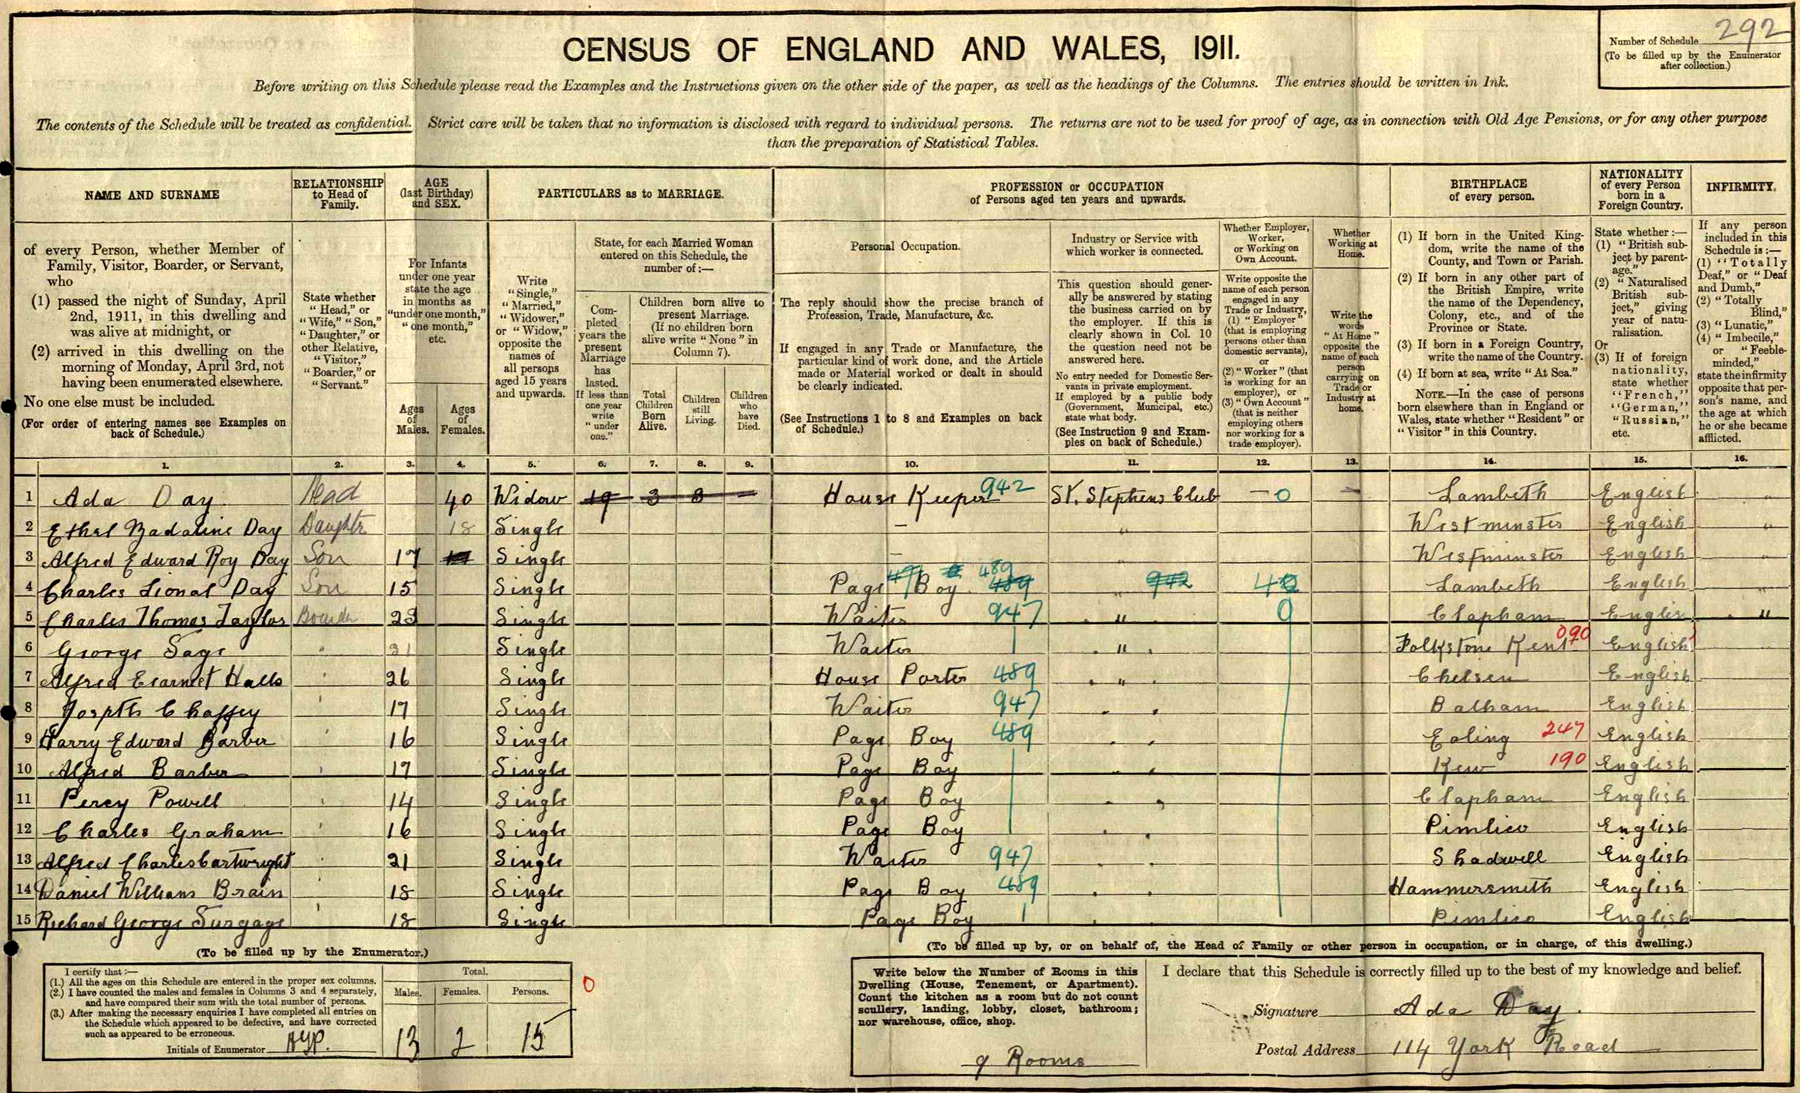 292
Number of Schedule
(To be filled up by the Enumerator
after collection.)
CENSUS OF ENGLAND AND WALES, 1911.
Before writing on this Schedule please read the Examples and the Instructions given on the other side of the paper, as well as the headings of the Columns. The entries should be written in Ink.
The contents of the Schedule will be treated as confidential. Strict care will be taken that no information is disclosed with regard to individual persons. The returns are not to be used for proof of age, as in connection with Old Age Pensions, or for any other purpose
than the preparation of Statistical Tables.
NAME AND SURNAME
of every Person, whether Member of
Family, Visitor, Boarder, or Servant,
who
(1) passed the night of Sunday, April
2nd, 1911, in this dwelling and
was alive at midnight, or
(2) arrived in this dwelling on the
morning of Monday, April 3rd, not
having been enumerated elsewhere.
No one else must be included.
(For order of entering names see Examples on
back of Schedule.)
RELATIONSHIP
to Head of
Family.
State whether
"Head," or
"Wife," "Son,"
"Daughter," or
other Relative,
"Visitor,"
"Boarder," or
"Servant."
AGE
(last Birthday)
and SEX.
For Infants
under one year
state the age
in months as
"under one month,"
"one month,"
etc.
Ages
of
Males.
Ages
of
Females.
PARTICULARS as to MARRIAGE.
Write
"Single,"
"Married,"
"Widower,"
or "Widow,"
opposite the
names of
all persons
aged 15 years
and upwards.
State, for each Married Woman
entered on this Schedule, the
number of:—
Com-
pleted
years the
present
Marriage
has
lasted.
If less than
one year
write
"under
one."
Children born alive to
present Marriage.
(If no children born
alive write "None" in
Column 7).
Total
Children
Born
Alive.
Children
still
Living.
Children
who
have
Died.
PROFESSION or OCCUPATION
of Persons aged ten years and upwards.
Personal Occupation.
The reply should show the precise branch of
Profession, Trade, Manufacture, &c.
If engaged in any Trade or Manufacture, the
particular kind of work done, and the Article
made or Material worked or dealt in should
be clearly indicated.
(See Instructions 1 to 8 and Examples on back
of Schedule.)
Industry or Service with
which worker is connected.
This question should gener-
ally be answered by stating
the business carried on by
the employer. If this is
clearly shown in Col. 10
the question need not be
answered here.
No entry needed for Domestic Ser-
vants in private employment.
If employed by a public body
(Government, Municipal, etc.)
state what body.
(See Instruction 9 and Exam-
ples on back of Schedule.)
Whether Employer,
Worker,
or Working on
Own Account.
Write opposite the
name of each person
engaged in any
Trade or Industry,
(1) "Employer"
(that is employing
persons other than
domestic servants),
or
(2) "Worker" (that
is working for an
employer), or
(3) "Own Account"
(that is neither
employing others
nor working for a
trade employer).
Whether
Working at
Home.
Write the
words
"At Home"
opposite the
name of each
person
carrying on
Trade or
Industry at
home.
BIRTHPLACE
of every person.
(1) If born in the United King-
dom, write the name of the
County, and Town or Parish.
(2) If born in any other part of
the British Empire, write
the name of the Dependency,
Colony, etc., and of the
Province or State.
(3) If born in a Foreign Country,
write the name of the Country.
(4) If born at sea, write "At Sea."
NOTE.—In the case of persons
born elsewhere than in England or
Wales, state whether "Resident" or
"Visitor" in this Country.
NATIONALITY
of every Person
born in a
Foreign Country.
State whether:—
(1) "British sub-
ject by parent-
age."
(2) "Naturalised
British sub-
ject," giving
year of natu-
ralisation.
Or
(3) If of foreign
nationality,
state whether
"French,"
"German,"
"Russian,"
etc.
INFIRMITY.
If any person
included in this
Schedule is:—
(1) "Totally
Deaf," or "Deaf
and Dumb,"
(2) "Totally
Blind,"
(3) "Lunatic,"
(4) "Imbecile,"
or "Feeble-
minded,"
state the infirmity
opposite that per-
son's name, and
the age at which
he or she became
afflicted.
1. 2. 3. 4. 5. 6. 7. 8. 9. 10. 11. 12. 13. 14. 15. 16.
1 Ada Day Head 40 Widow 19 3 3 — House Keeper 942 St. Stephens Club — 0 — Lambeth English "
2 Ethel Madaline Day Daughter 18 Single — " Westminster English "
3 Alfred Edward Roy Day Son 17 Single — Westminster English "
4 Charles Lional Day Son 15 Single Page Boy 489 " 942 Lambeth English "
5 Charles Thomas Taylor Boarder 23 Single Waiter 947 " 0 Clapham English "
6 George Sage " 31 Single Waiter " Folkstone Kent 090 English
7 Alfred Earnest Halls " 26 Single House Porter 489 " Chelsea English
8 Jospth Chaffey " 17 Single Waiter 947 " Balham English
9 Harry Edward Barber " 16 Single Page Boy 489 " Ealing 247 English
10 Alfred Barber " 17 Single Page Boy " Kew 190 English
11 Percy Powell " 14 Single Page Boy " Clapham English
12 Charles Graham " 16 Single Page Boy " Pimlico English
13 Alfred Charles Cartwright " 21 Single Waiter 947 " Shadwell English
14 Daniel William Brain " 18 Single Page Boy 489 " Hammersmith English
15 Richard George Surgage " 18 Single Page Boy " Pimlico English
(To be filled up by the Enumerator.)
I certify that:—
(1.) All the ages on this Schedule are entered in the proper sex columns.
(2.) I have counted the males and females in Columns 3 and 4 separately,
and have compared their sum with the total number of persons.
(3.) After making the necessary enquiries I have completed all entries on
the Schedule which appeared to be defective, and have corrected
such as appeared to be erroneous.
Initials of Enumerator
Total.
Males. Females. Persons.
13 2 15
0
(To be filled up by, or on behalf of, the Head of Family or other person in occupation, or in charge, of this dwelling.)
Write below the Number of Rooms in this
Dwelling (House, Tenement, or Apartment).
Count the kitchen as a room but do not count
scullery, landing, lobby, closet, bathroom;
nor warehouse, office, shop.
9 Rooms
I declare that this Schedule is correctly filled up to the best of my knowledge and belief.
Signature Ada Day.
Postal Address 114 York Road